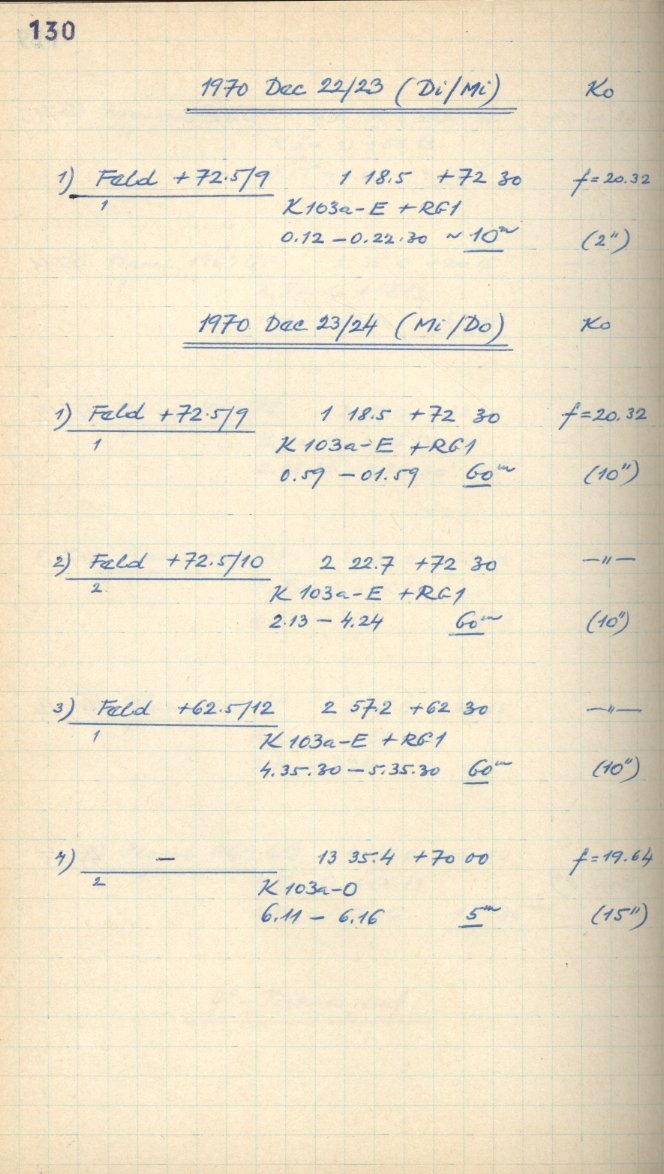 130
1970 Dec 22/23 (Di/Mi) Ko
1) Feld +72.5/9 1 18.5 +72 30 f=20.32
1 K103a-E +RG1
0.12 – 0.22.30 ~ 10ᵐ (2")
1970 Dec 23/24 (Mi/Do) Ko
1) Feld +72.5/9 1 18.5 +72 30 f=20.32
1 K103a-E +RG1
0.59 – 01.59 60ᵐ (10")
2) Feld +72.5/10 2 22.7 +72 30 —"—
2 K103a-E +RG1
2.13 – 4.24 60ᵐ (10")
3) Feld +62.5/12 2 57.2 +62 30 —"—
1 K103a-E +RG1
4.35.30 – 5.35.30 60ᵐ (10")
4) — 13 35.4 +70 00 f=19.64
2 K103a-O
6.11 – 6.16 5ᵐ (15")